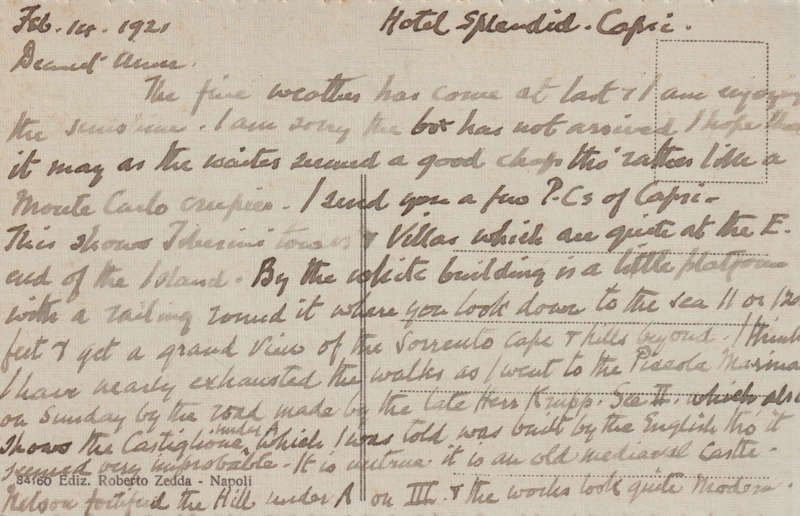 Feb. 14. 1921 Hotel Splendid. Capri.
Dearest
The fine weather has come at last & I am enjoying
the sunshine. I am sorry the box has not arrived I hope
it may as the waiter seemed a good chap tho' rather like a
Monte Carlo crupier. I send you a few P.Cs of Capri.
This shows Tiberius' tower & Villas which are quite at the E.
end of the Island. By the white building is a little platform
with a railing round it where you look down to the sea 11 or 1200
feet & get a grand view of the Sorrento Cape & hills beyond. I think
I have nearly exhausted the walks as I went to the Piccola Marina
on Sunday by the road made by the late Herr Krupp. See II. which also
shows the Castiglione, under A which I was told was built by the English tho' it
seemed very improbable. It is untrue it is an old mediaeval Castle.
84160 Ediz. Roberto Zedda - Napoli
Nelson fortified the Hill under A on III. & the works look quite modern.